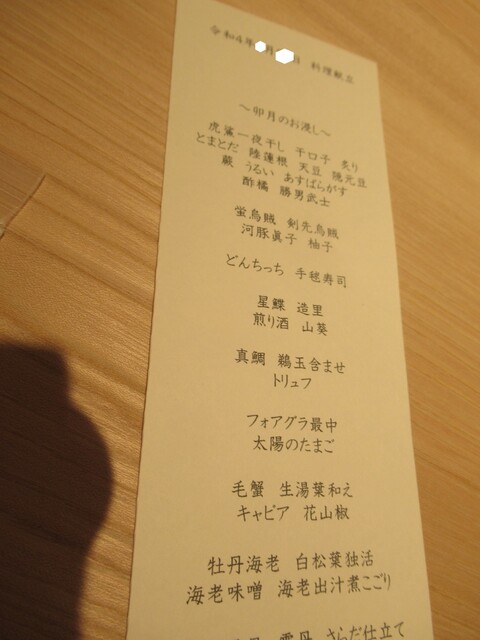 令和4年 月 日 料理献立
～卯月のお浸し～
虎鯊一夜干し 干口子 炙り
とまとだ 陸蓮根 天豆 隠元豆
蕨 うるい あすぱらがす
酢橘 勝男武士
蛍烏賊 剣先烏賊
河豚眞子 柚子
どんちっち 手毬寿司
星鰈 造里
煎り酒 山葵
真鯛 鶉玉含ませ
トリュフ
フォアグラ最中
太陽のたまご
毛蟹 生湯葉和え
キャビア 花山椒
牡丹海老 白松葉独活
海老味噌 海老出汁煮こごり
雲丹 さらだ仕立て